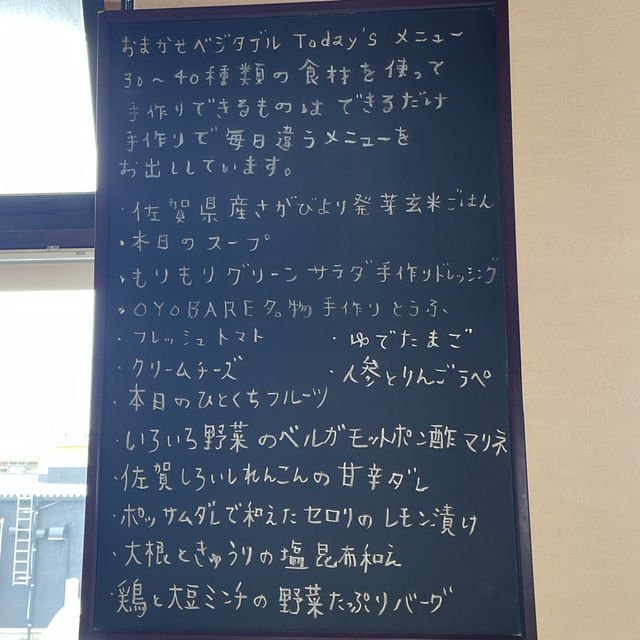 おまかせベジタブル Today's メニュー
30～40種類の食材を使って
手作りできるものは できるだけ
手作りで毎日違うメニューを
お出ししています。
・佐賀県産さがびより発芽玄米ごはん
・本日のスープ
・もりもりグリーンサラダ手作りドレッシング
・OYOBARE名物手作りとうふ
・フレッシュトマト ・ゆでたまご
・クリームチーズ ・人参とりんごラペ
・本日のひとくちフルーツ
・いろいろ野菜のベルガモットポン酢マリネ
・佐賀しろいしれんこんの甘辛ダレ
・ポッサムダレで和えたセロリのレモン漬け
・大根ときゅうりの塩昆布和え
・鶏と大豆ミンチの野菜たっぷりバーグ